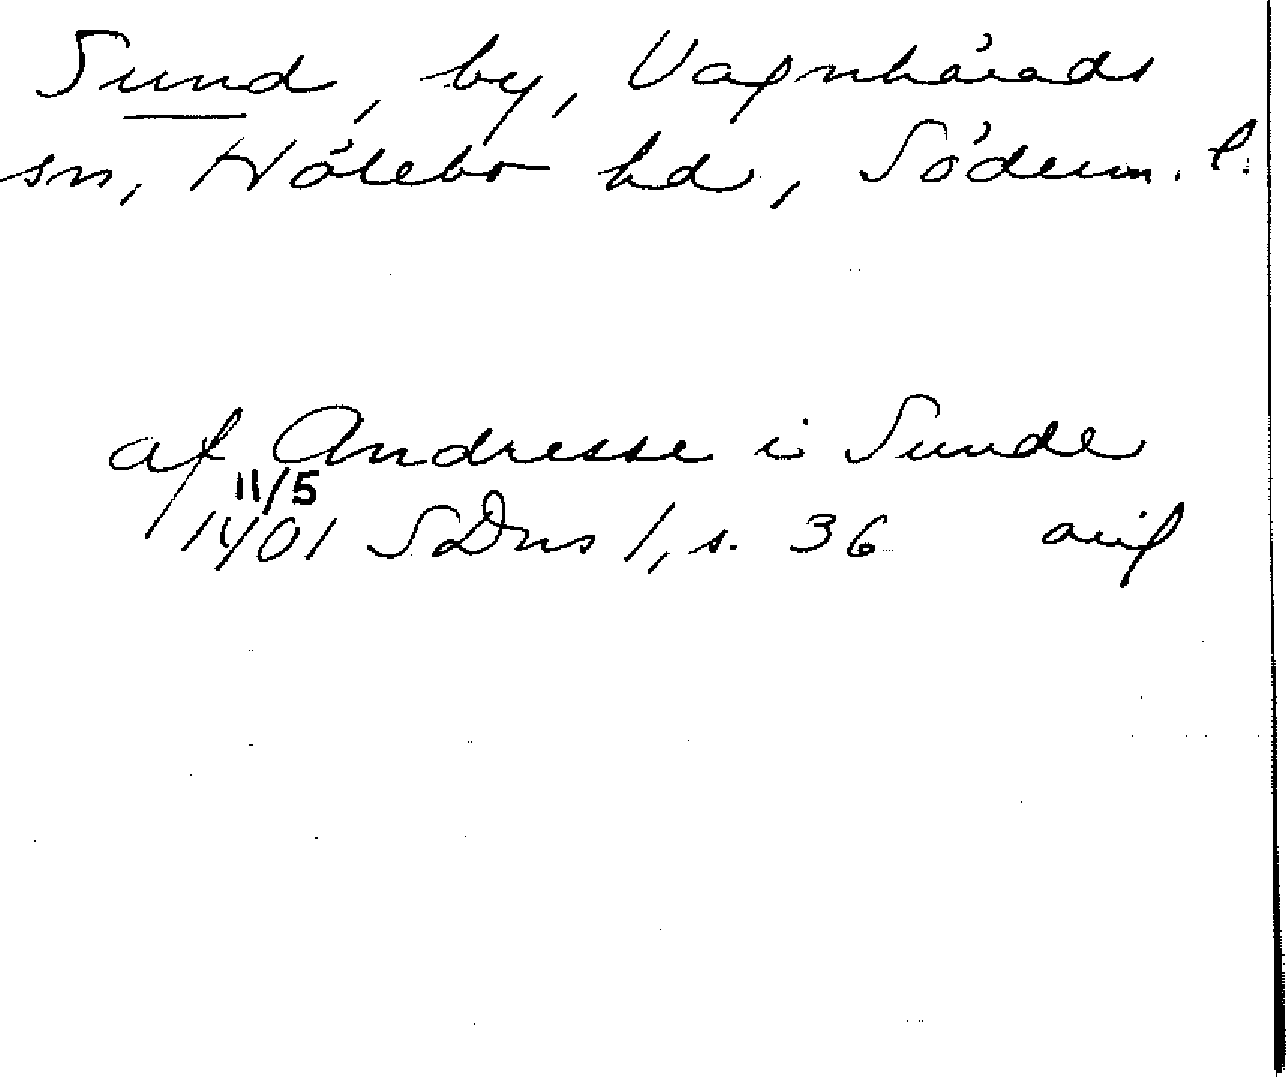 Sund, by, Vagnhärads
sn, Hölebo hd, Söderm. l.
af Andresse i Sunde
11/5
1401 SDns 1, s. 36 orig